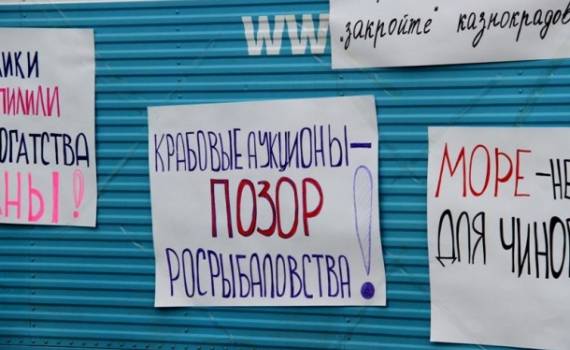 WW
"закройте" казнокрадов
ИКИ
ПИЛИЛИ
ОГАТСТВА
НЫ!
КРАБОВЫЕ АУКЦИОНЫ –
ПОЗОР
РОСРЫБАЛОВСТВА!
МОРЕ - НЕ
ДЛЯ ЧИНОВ